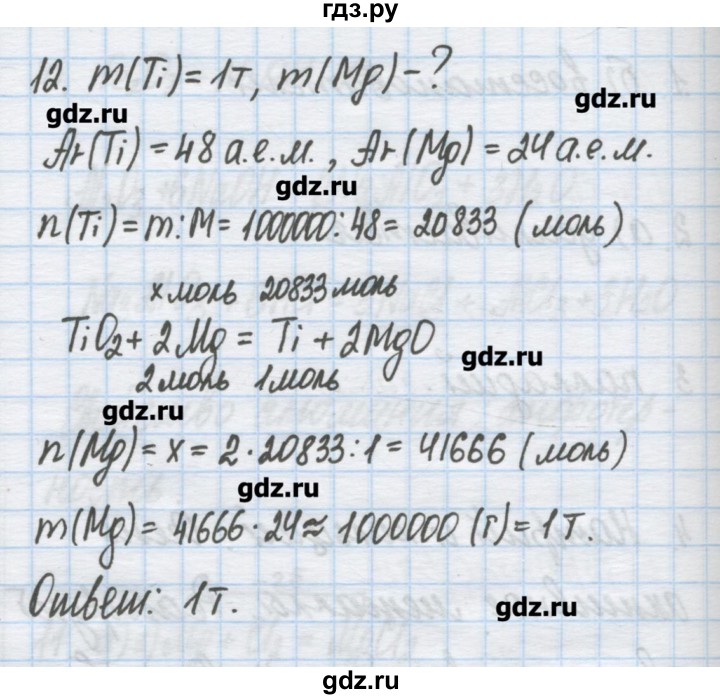 гдз.ру
12. m(Ti) = 1т, m(Mg) - ?
gdz.ru
gdz.ru
Ar(Ti) = 48 а.е.м., Ar(Mg) = 24 а.е.м.
gdz.ru
n(Ti) = m:M = 1000000:48 = 20833 (моль)
x моль 20833 моль
TiO₂ + 2Mg = Ti + 2MgO
gdz.ru
2 моль 1 моль
gdz.ru
n(Mg) = x = 2·20833:1 = 41666 (моль)
gdz.ru
m(Mg) = 41666·24 ≈ 1000000 (г) = 1т.
Ответ: 1т.
gdz.ru
gdz.ru